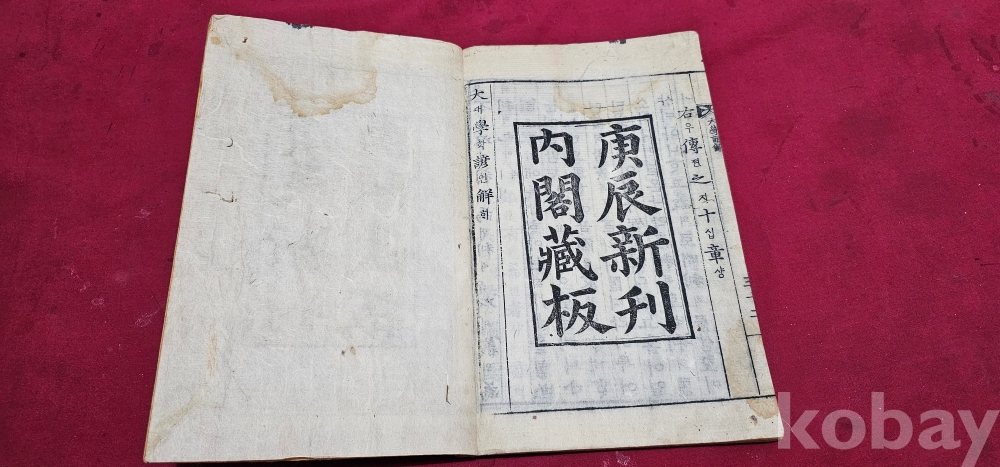 右우傳뎐之지十십章쟝
庚辰新刊
內閣藏板
大대學학諺언解ᄒᆡ
kobay